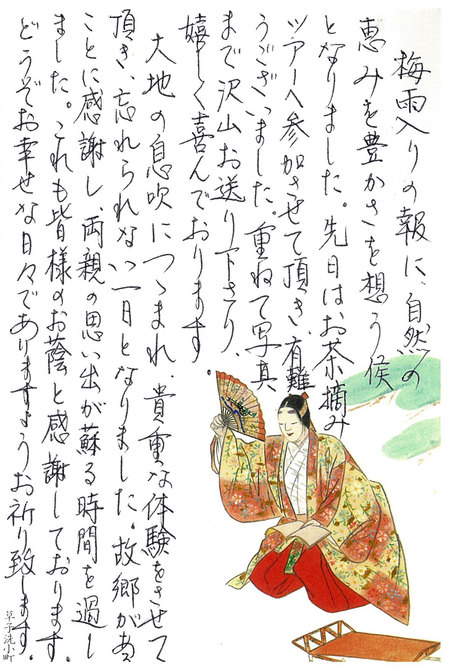 梅雨入りの報に、自然の
恵みを豊かさを想う候
となりました。先日はお茶摘み
ツアーへ参加させて頂き、有難
うございました。重ねて写真
まで沢山お送り下さり、
嬉しく喜んでおります。
大地の息吹につゝまれ、貴重な体験をさせて
頂き、忘れられない一日となりました。故郷がある
ことに感謝し、両親の思い出が蘇る時間を過し
ました。これも皆様のお蔭と感謝しております。
どうぞお幸せな日々でありますようお祈り致します。
草子洗小町